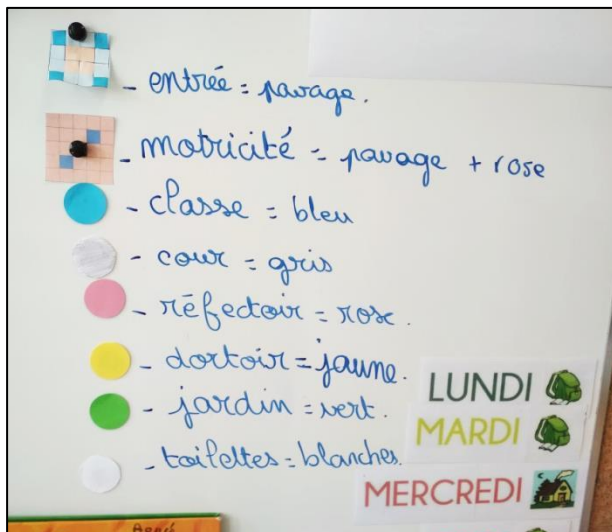 - entrée = pavage.
- motricité = pavage + rose
- classe = bleu
- cour = gris
- réfectoir = rose.
- dortoir = jaune.
- jardin = vert.
- toilettes = blanches.
LUNDI
MARDI
MERCREDI